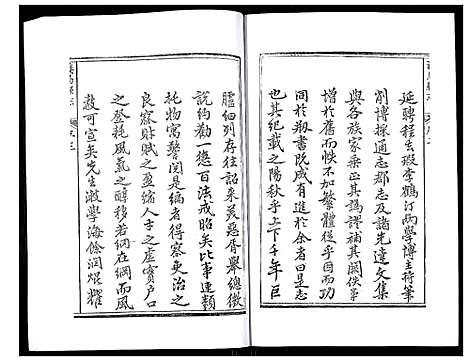 延聘程玄瑕李鶴汀兩學博主持筆
削博採通志郡志及諸先達文集
與各族家乘正其譌謬補其闕佚第
增於舊而悚不加繁體從乎因而功
同於刱書既成有進於余者曰是志
也其紀載之陽秋乎上下千年巨
臚細列存往詔來美惡胥舉總徵
說約勸一懲百法戒昭矣比事連類
托物寓警閱是編者得察吏治之
良窳財賦之盈绌人才之虛實戶口
之登耗風氣之醇移若網在綱而風
教可宣矣先生激學海餘潤焜耀